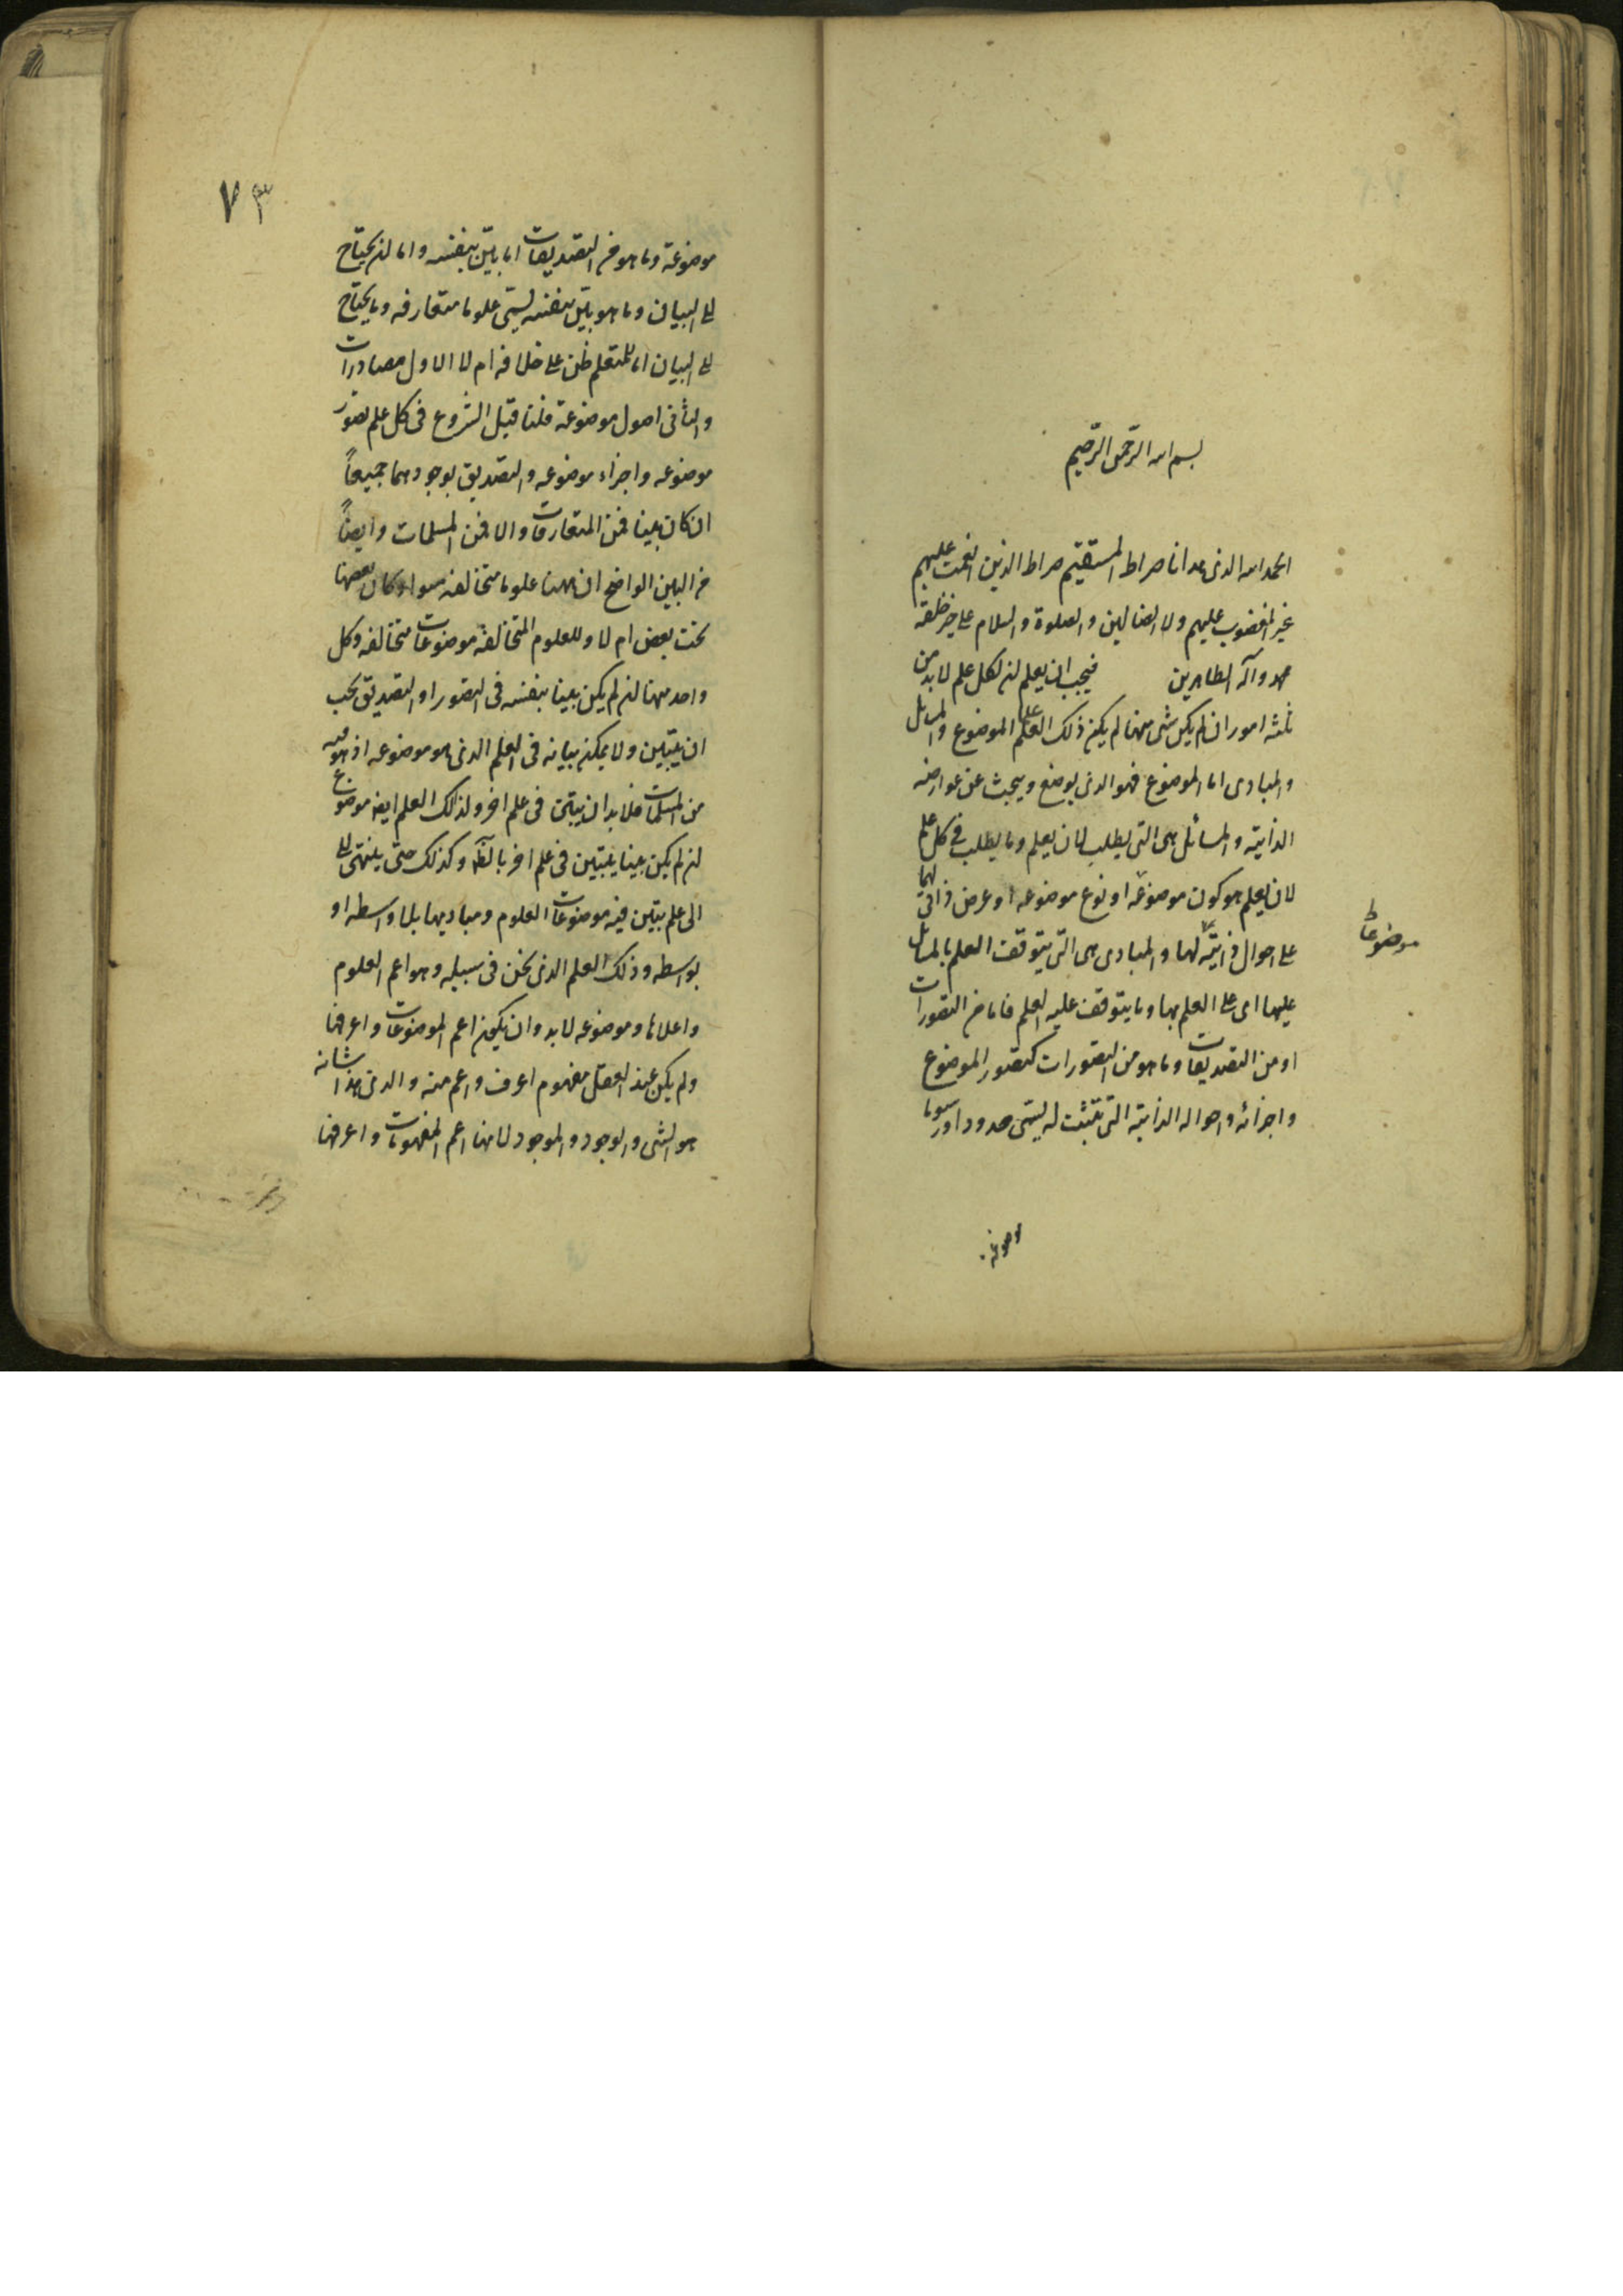 بسم الله الرحمن الرحیم
الحمد لله الذی هدانا صراط المستقیم صراط الذین انعمت علیهم
غیر المغضوب علیهم ولا الضالین والصلوة والسلام علی خیر خلقه
محمد وآله الطاهرین فیجب ان یعلم ان لکل علم لابد من
ثلثه امور ان لم یکن شی منها لم یکن ذلک العلم علما الموضوع والمسائل
والمبادی اما الموضوع فهو الذی یوضع ویبحث عن عوارضه
الذاتیة والمسائل هی التی یطلب لان یعلم وما یطلب فی کل علم
لان یعلم هو کون موضوعه او نوع موضوعه او عرض ذاتی لهما
موضوعا
علی احوال ذاتیة لها والمبادی هی التی یتوقف العلم بالمسائل
علیها ای علی العلم بها وما یتوقف علیه العلم فاما من التصورات
او من التصدیقات وما هو من التصورات کتصور الموضوع
واجزائه واحواله الذاتیة التی تثبت له یسمی حدودا ورسوما
موضوعة
٧٣
موضوعة وما هو من التصدیقات اما بین بنفسه واما ان یحتاج
الی البیان وما هو بین بنفسه یسمی علوما متعارفه وما یحتاج
الی البیان اما للمتعلم ظن علی خلافه ام لا الاول مصادرات
والثانی اصول موضوعة فلنا قبل الشروع فی کل علم تصور
موضوعه واجزاء موضوعه والتصدیق بوجودهما جمیعاً
ان کان بینا فمن المتعارفات والا فمن المسلمات وایضاً
من البین الواضح ان ههنا علوما متخالفه سواء کان بعضها
تحت بعض ام لا وللعلوم المتخالفة موضوعات متخالفه وکل
واحد منها ان لم یکن بینا بنفسه فی التصور او التصدیق یجب
ان یتبین ولا یمکن بیانه فی العلم الذی هو موضوعه اذ هو فیه
من المسلمات فلابد ان یتبین فی علم اخر ولذلک العلم ایضا موضوع
ان لم یکن بینا یتبین فی علم اخر وکذلک حتی ینتهی الی
الی علم یتبین فیه موضوعات العلوم ومبادیها بلا واسطه او
بواسطه وذلک العلم الذی نحن فی سبیله وهو اعم العلوم
واعلاها وموضوعه لابد وان یکون اعم الموضوعات واعرفها
ولم یکن عند العقل مفهوم اعرف واعم منه والذی هذا شانه
هو الشی والوجود والموجود لانها اعم المفهومات واعرفها